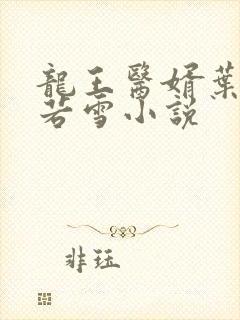 龍王醫婿葉
若雪小説
非珏